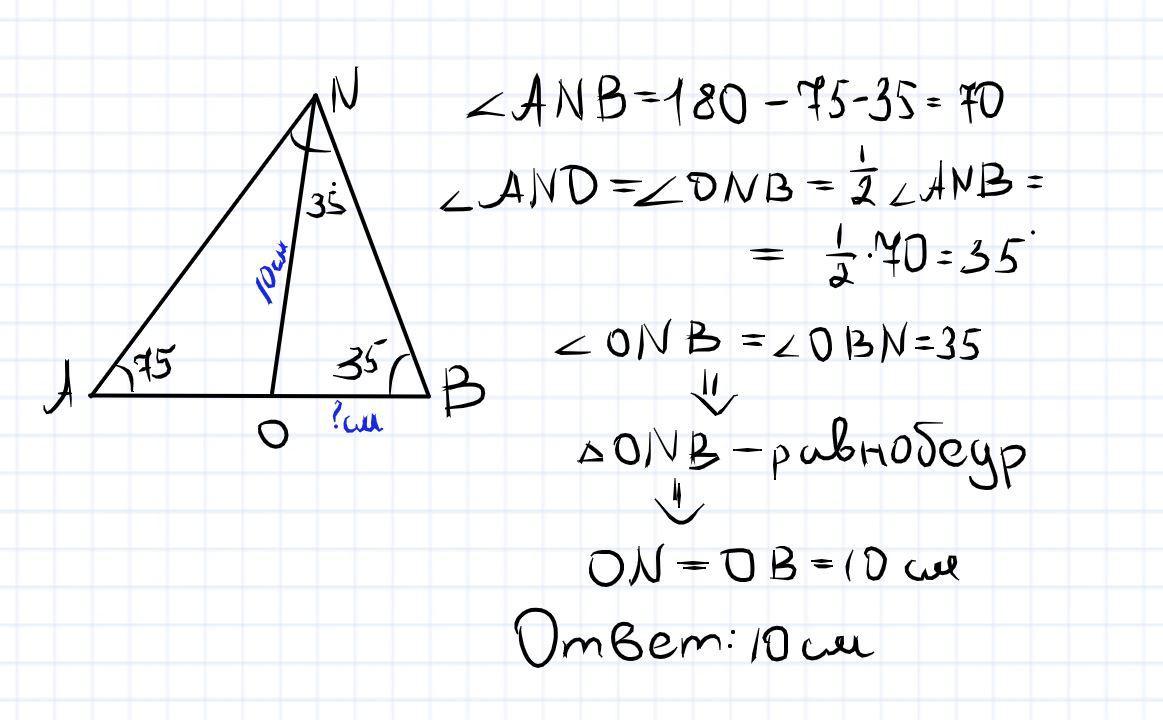 N
35°
10 см
A
75
35
B
?см
O
∠ANB=180-75-35=70
∠ANO=∠ONB=1/2∠ANB=
=1/2·70=35°
∠ONB=∠OBN=35
⇓
△ONB-равнобедр
⇓
ON=OB=10 см
Ответ: 10 см